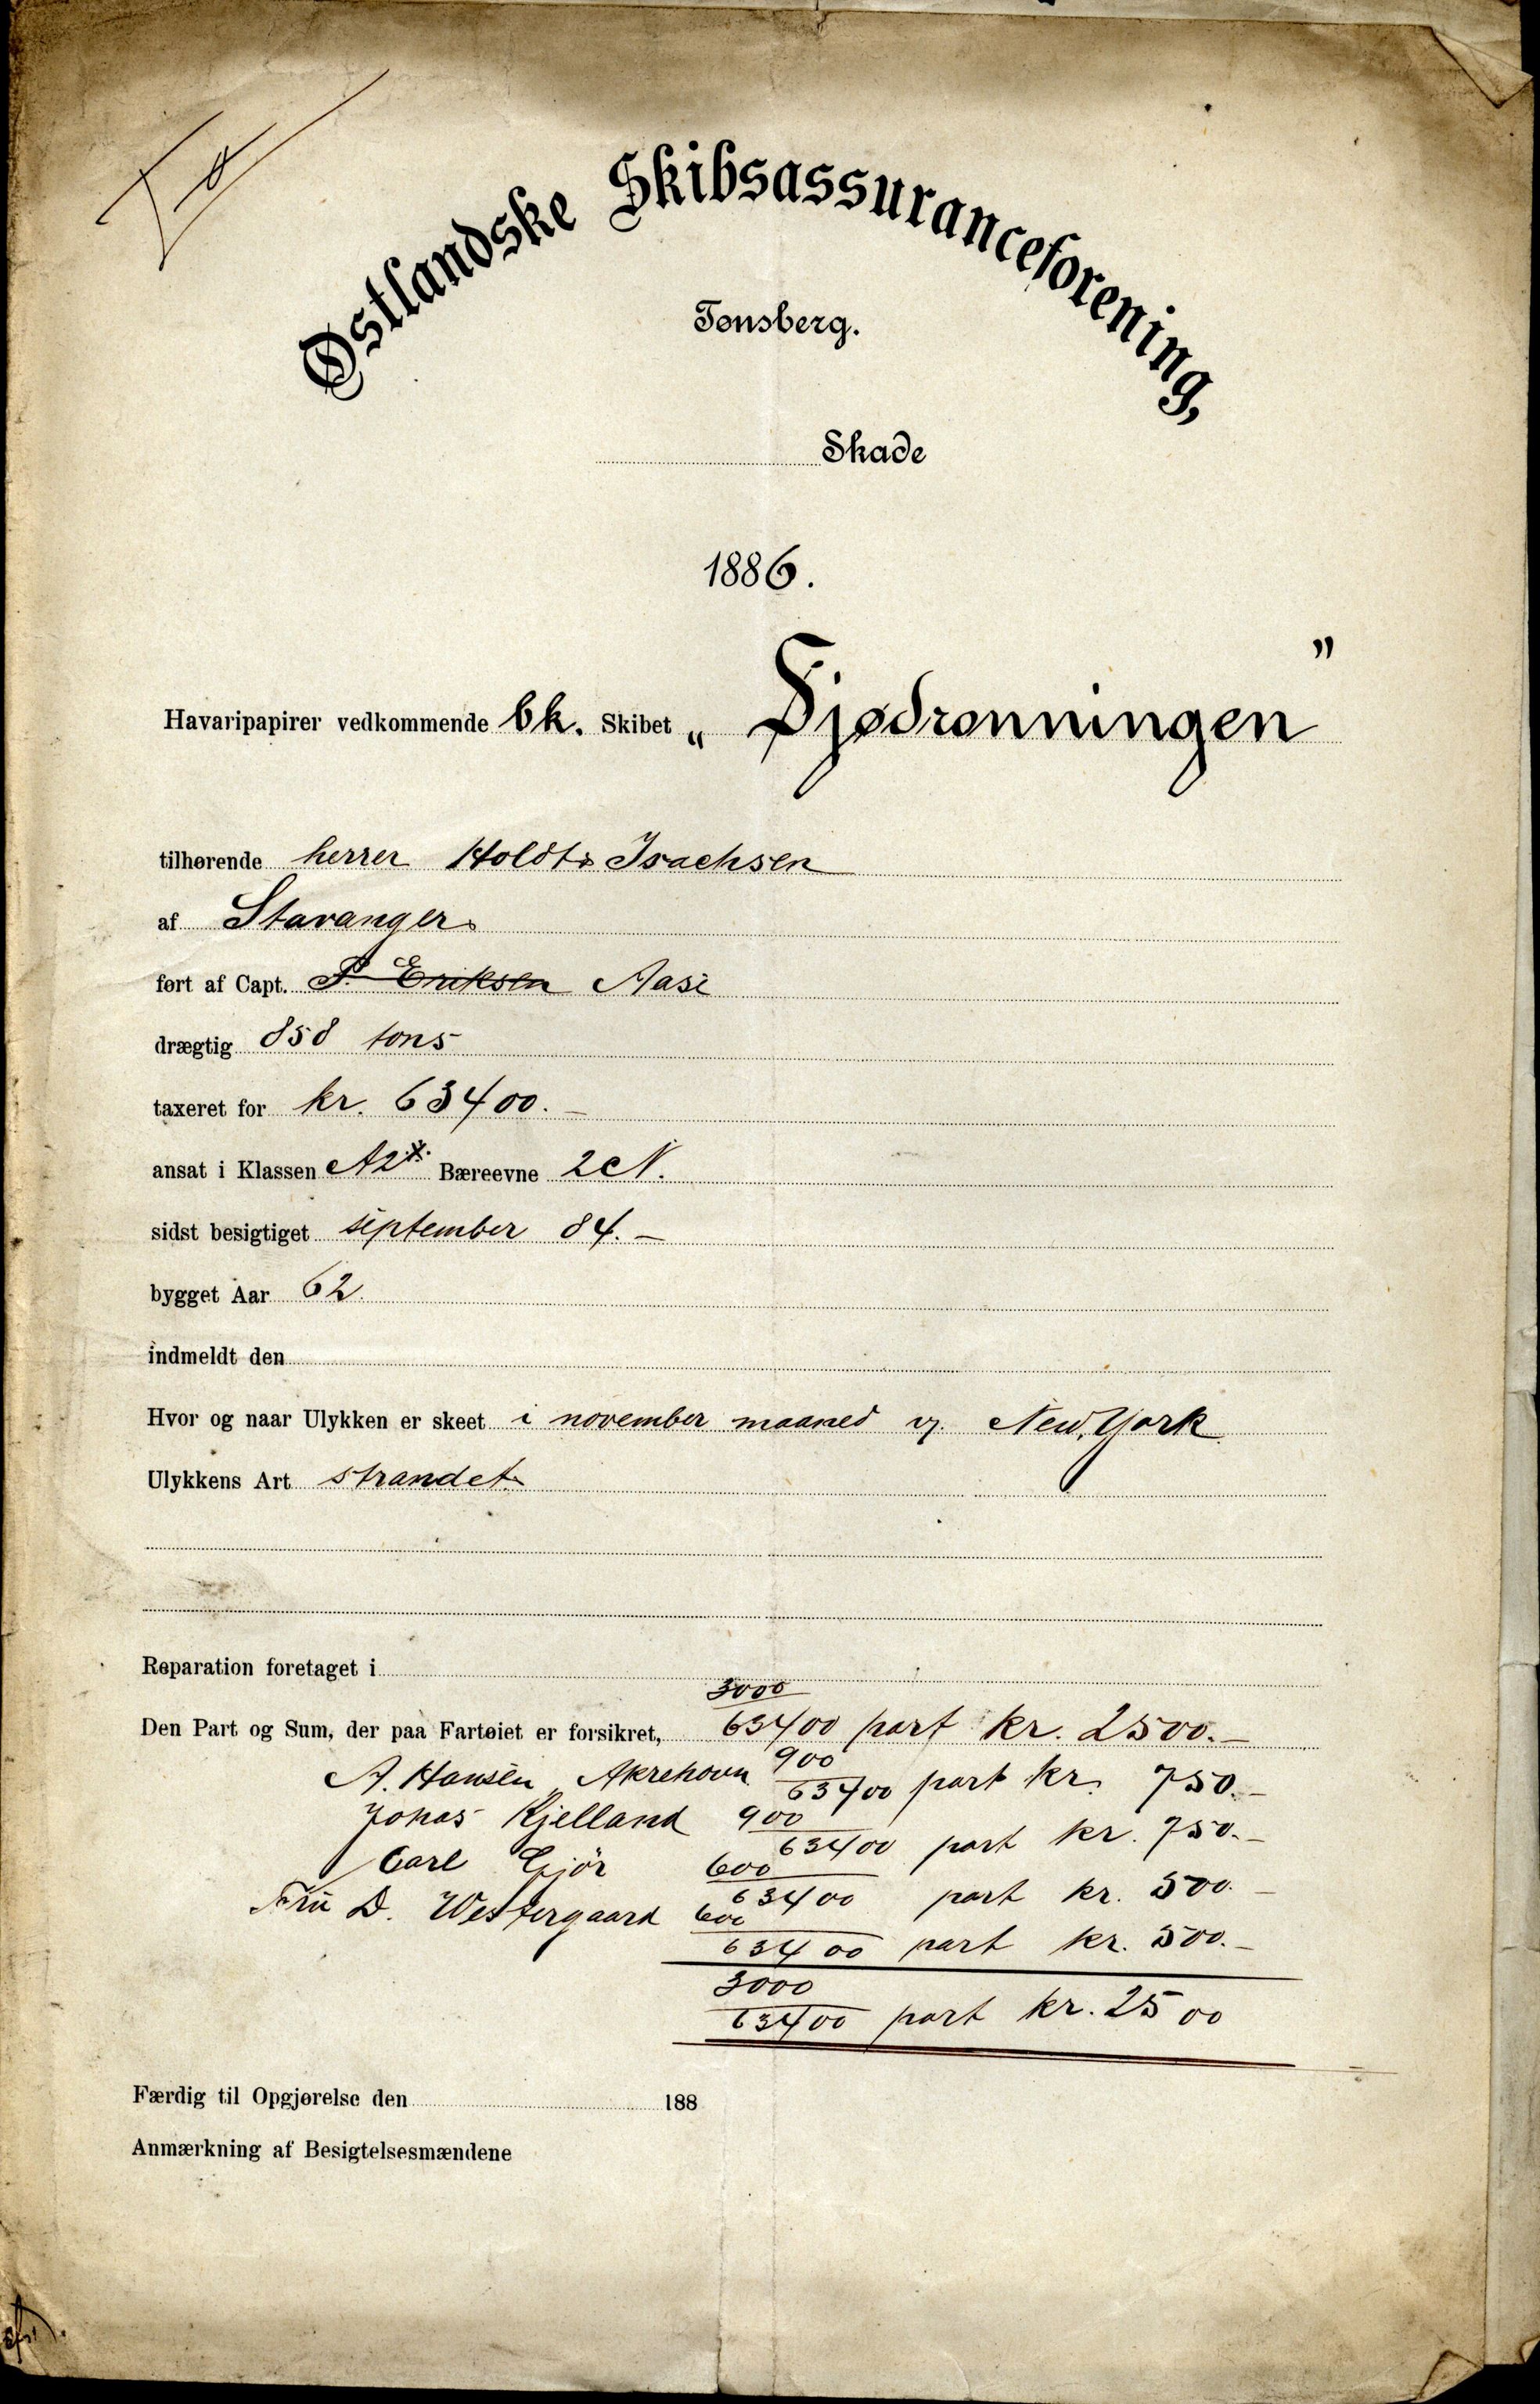 Østlandske Skibsassuranceforening,
Tønsberg.
Skade
1886.
Havaripapirer vedkommende bk. Skibet „ Sjødronningen "
tilhørende herrer Holdt & Isachsen
af Stavanger
ført af Capt. P. Eriksen Aase
drægtig 858 tons
taxeret for kr. 63400.—
ansat i Klassen A2*. Bæreevne 2 N.
sidst besigtiget september 84.—
bygget Aar 62
indmeldt den
Hvor og naar Ulykken er skeet i november maaned v. New York
Ulykkens Art strandet.
Reparation foretaget i
Den Part og Sum, der paa Fartøiet er forsikret, 3000/63400 part kr. 2500.—
A. Hansen, Akrehavn 900/63400 part kr. 750.—
Jonas Kjelland 900/63400 part kr. 750.—
Carl Gjör 600/63400 part kr. 500.—
Fru D. Westergaard 600/63400 part kr. 500.—
3000/63400 part kr. 2500
Færdig til Opgjørelse den 188
Anmærkning af Besigtelsesmændene